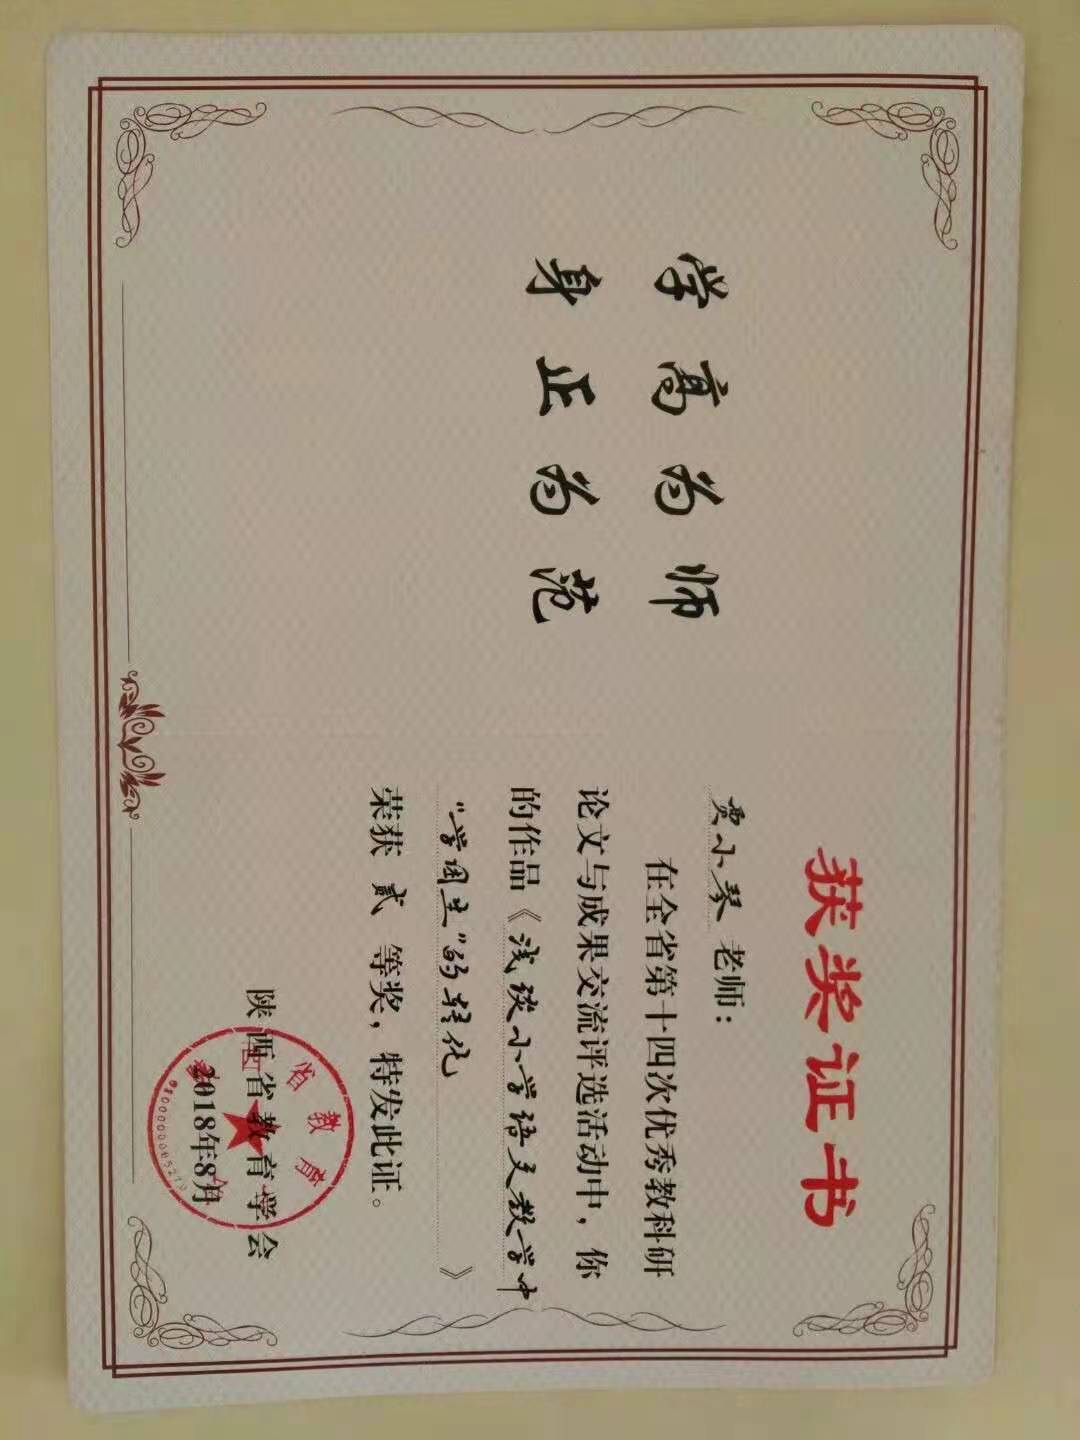 学高为师
身正为范
获奖证书
贾小琴 老师：
在全省第十四次优秀教科研
论文与成果交流评选活动中，你
的作品《浅谈小学语文教学中
“学困生”的转化》
荣获 贰 等奖，特发此证。
陕西省教育学会
2018年8月